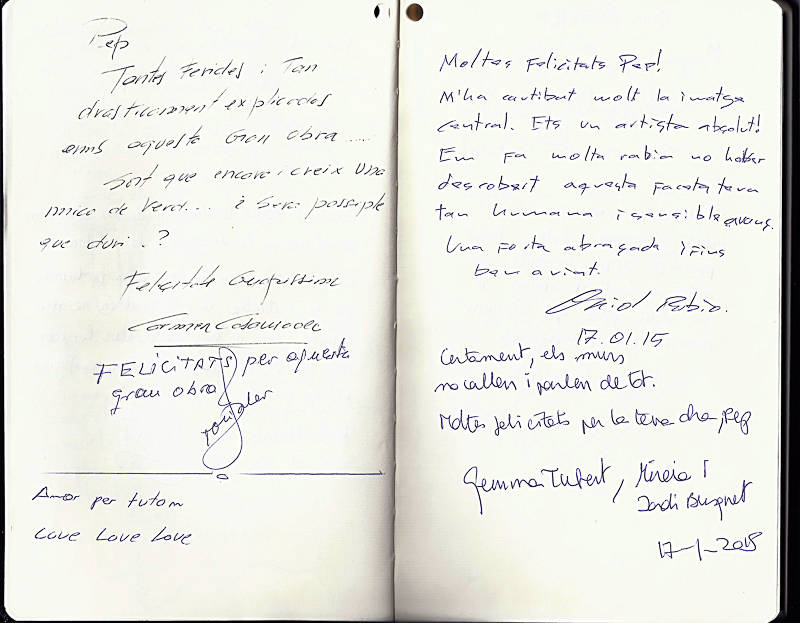 Pep
Tantes Ferides i Tan
drasticament explicades
amb aquesta Gran obra ....
Sort que encara i creix una
mica de Verd... i Sera possible
que duri . ?
Felicitats
Carmen
FELICITATS per aquesta
gran obra
Amor per tutom
Love Love Love
Moltes Felicitats Pep!
M'ha cautibat molt la imatge
central. Ets un artista absolut!
Em fa molta rabia no haber
descobert aquesta faceta teva
tan humana i sensible
Una forta abraçada i fins
ben aviat.
Oriol Rubio.
17.01.15
Certament, els murs
no callen i parlen de tot.
Moltes felicitats per la teva obra, Pep
Gemma Tubert, Mireia i
Jordi Busquet
17-1-2015